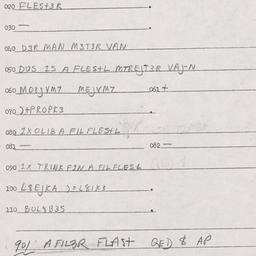 020 FLES+3R
030 —
040 D3R MAN M3T3R VAN
050 DUS 25 A FLES+L MTREJT3R VAJ-N
060 MO8JVM7 MEJVM7 061 +
070 )+PROPK3
080 2XOL1BA FIL FLES+L
081 — 082 —
090 1X TR1NK F2N A FIL FLES&
100 L8EJKA )=L81K8
110 BUL8B35
901 A FIL3R FLA8+ QED $ AP